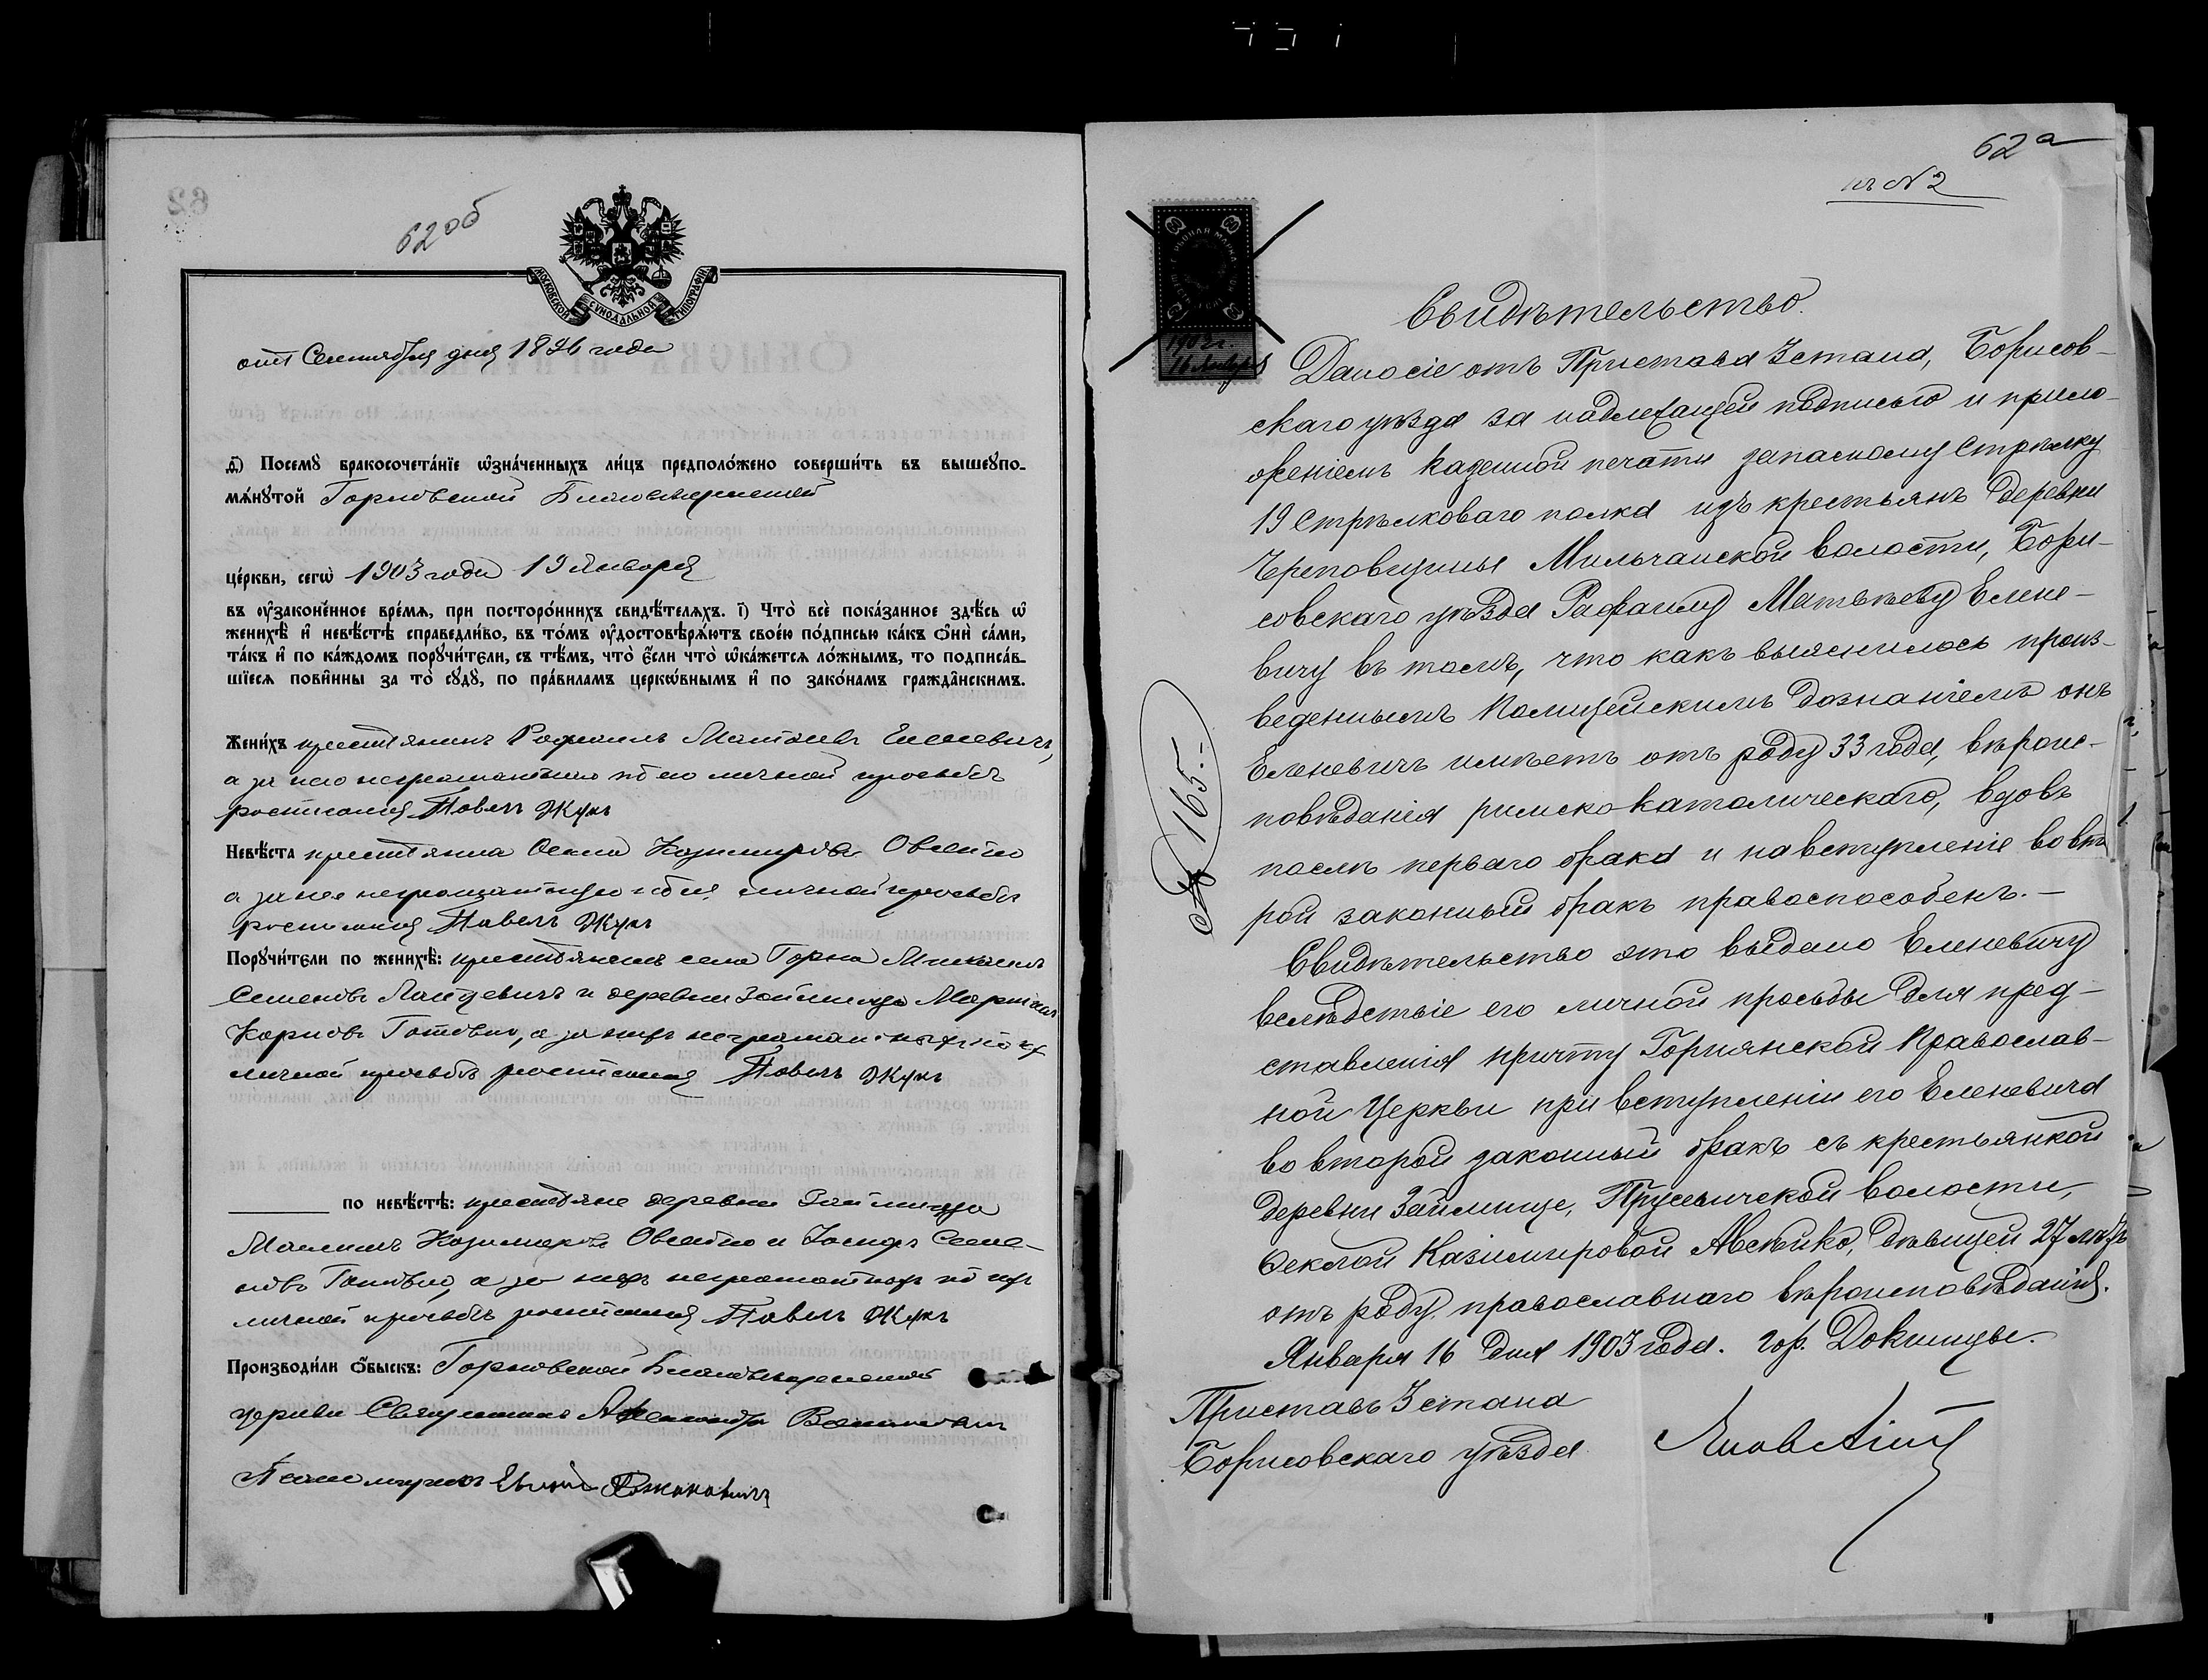 62 об
МОСКОВСКОЙ СѴНОДАЛЬНОЙ ТИПОГРАФІИ
Сентября дня 1896 года
Посемꙋ бракосочета́нїе ѡ҆зна́ченныхъ ли́цъ предположено соверши́ть въ вышеꙋпо-
мѧ́нꙋтой Горновской
це́ркви, сегѡ̀ 1903 года 19 Января
въ ᲂу҆зако́нѐнное вре́мѧ, при посторо́ннихъ свидѣ́телѧхъ. і҃) Что̀ всѐ пока́занное здѣ́сь ѡ҆
женихѣ̀ и҆ невѣ́стѣ справедли́во, въ то́мъ ᲂу҆достовѣрѧ́ютъ свое́ю по́дписью ка́къ ѻ҆нѝ са́ми,
та́къ и҆ по ка́ждомъ порꙋчи́тели, съ тѣ́мъ, что̀ є҆́сли что̀ ѡ҆ка́жетсѧ ло́жнымъ, то подписа́в-
шїесѧ пови́нны за то̀ сꙋдꙋ̀, по пра́виламъ церко́внымъ и҆ по зако́намъ гражда̂нскимъ.
Жени́хъ крестьянинъ Рафаилъ Матѳеевъ Еленевичъ,
а за него неграмотнаго по его личной просьбѣ
росписался Павелъ Жукъ
Невѣ́ста крестьянка Ѳекла Козимирова Овсейко
а за нея неграмотную по ея личной просьбѣ
росписался Павелъ Жукъ
Порꙋчи́тели по женихѣ̀: крестьянинъ села Горна Михаилъ
Семеновъ и деревни Займища
а за нихъ неграмотныхъ по ихъ
личной просьбѣ росписался Павелъ Жукъ
по невѣ́стѣ: крестьяне деревни Займища
Овсейко и Іосифъ Семе-
новъ а за нихъ неграмотныхъ по ихъ
личной просьбѣ росписался Павелъ Жукъ
Производи́ли ѻ҆́быскъ: Горновской
церкви Священникъ Александръ
Псаломщикъ
62 а
къ № 2
1903 г.
16 Января
№ 165.
Свидѣтельство.
Дано сіе отъ Пристава 3 стана, Борисов-
скаго уѣзда за надлежащей подписью и прило-
женіемъ казенной печати запасному Стрѣлку
19 Стрѣлковаго полка изъ крестьянъ деревни
Череповщины Мильчанской волости, Бори-
совскаго уѣзда Рафаилу Матвѣеву Елене-
вичу въ томъ, что какъ выяснилось произ-
веденнымъ Полицейскимъ дознаніемъ онъ
Еленевичъ имѣетъ отъ роду 33 года, вѣроис-
повѣданія римско-католическаго, вдовъ
послѣ перваго брака и на вступленіе во вто
рой законный бракъ правоспособенъ. —
Свидѣтельство это выдано Еленевичу
вслѣдствіе его личной просьбы для пред-
ставленія причту Горнянской Православ-
ной Церкви при вступленіи его Еленевича
во второй законный бракъ съ крестьянкой
деревни Займище, Прусевичской волости,
Ѳеклой Казимировой Авсѣйко, дѣвицей 27 лѣтъ
отъ роду, православнаго вѣроисповѣданія.
Января 16 дня 1903 года. гор. Докшицы.
Приставъ 3 стана
Борисовскаго уѣзда